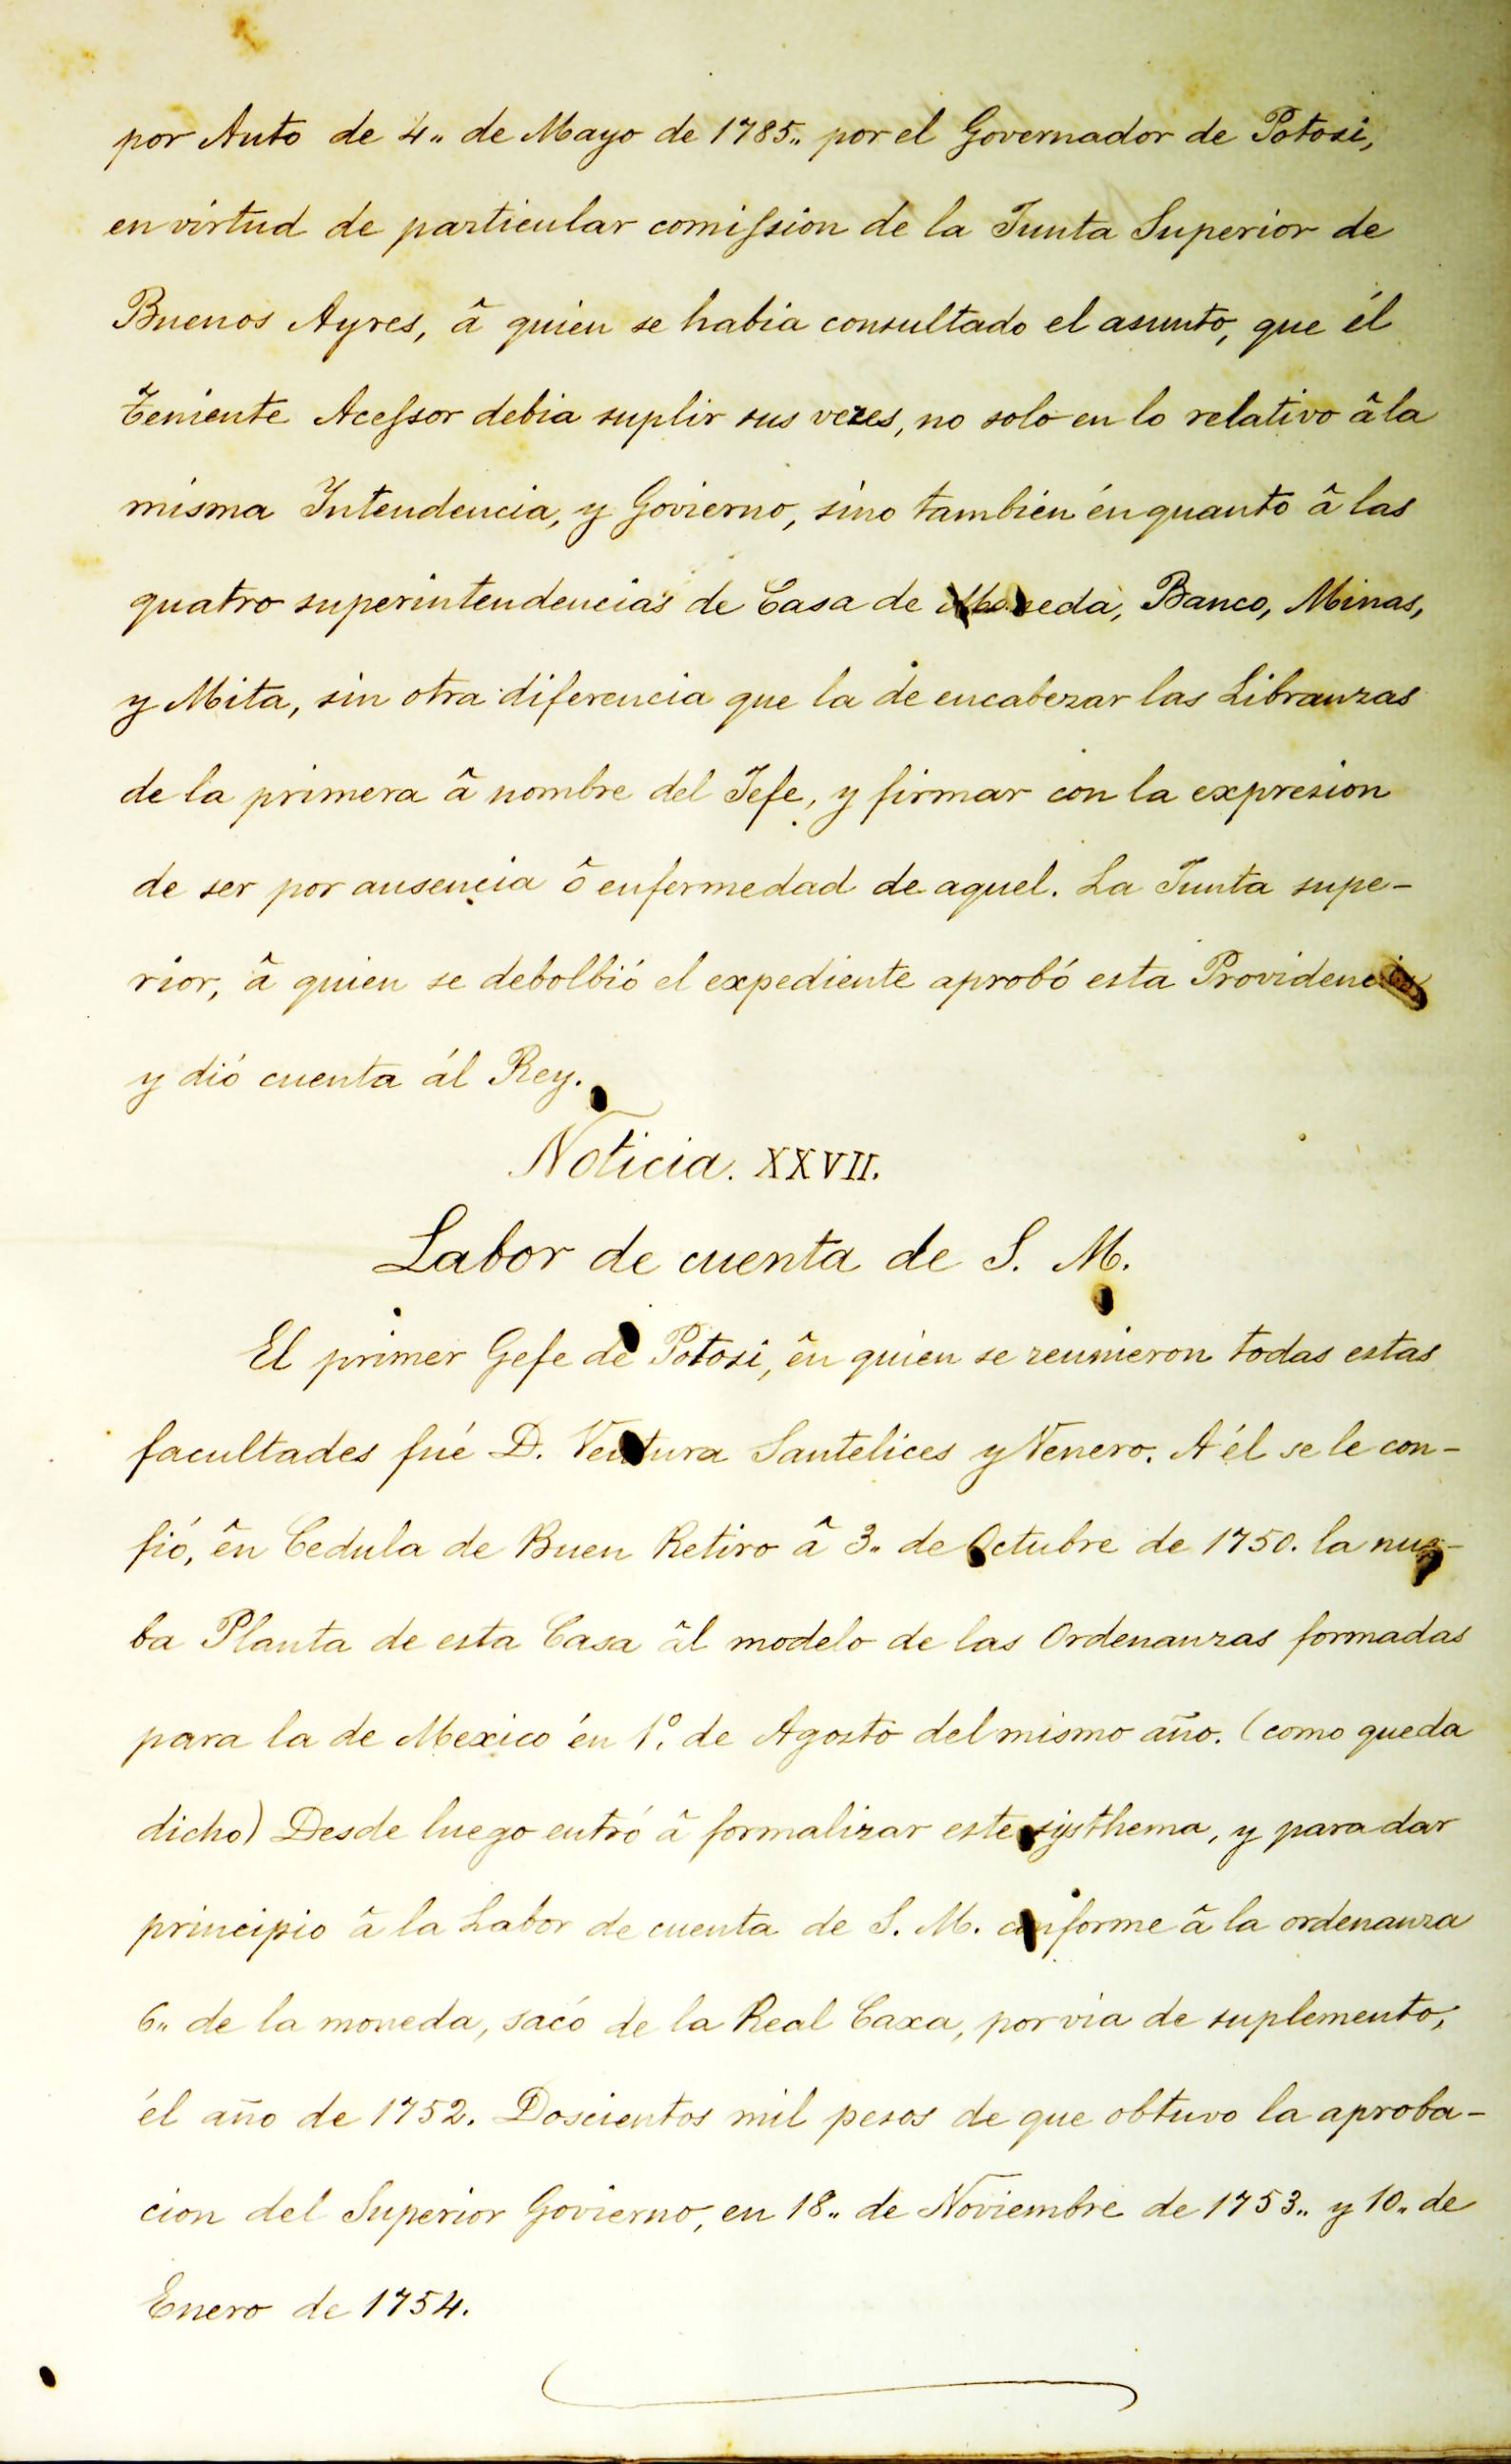 por Auto de 4„ de Mayo de 1785„ por el Governador de Potosi,
en virtud de particular comiſsion de la Junta Superior de
Buenos Ayres, â quien se habia consultado el asunto, que él
Teniente Aceſsor debia suplir sus vezes, no solo en lo relativo â la
misma Intendencia, y Govierno, sino tambien én quanto â las
quatro superintendencias de Casa de Moneda, Banco, Minas,
y Mita, sin otra diferencia que la de encabezar las Libranzas
de la primera â nombre del Jefe, y firmar con la expresion
de ser por ausencia ô enfermedad de aquel. La Junta supe-
rior, â quien se debolbió el expediente aprobó esta Providencia
y dió cuenta ál Rey.
Noticia. XXVII.
Labor de cuenta de S. M.
El primer Gefe de Potosi, ên quien se reunieron todas estas
facultades fué D. Ventura Santelices y Venero. A él se le con-
fió, ên Cedula de Buen Retiro â 3„ de Octubre de 1750. la nue-
ba Planta de esta Casa âl modelo de las Ordenanzas formadas
para la de Mexico én 1º. de Agosto del mismo año. (como queda
dicho) Desde luego entró â formalizar este systhema, y para dar
principio â la Labor de cuenta de S. M. conforme â la ordenanza
6„ de la moneda, sacó de la Real Caxa, por via de suplemento,
él año de 1752. Doscientos mil pesos de que obtuvo la aproba-
cion del Superior Govierno, en 18„ de Noviembre de 1753„ y 10„ de
Enero de 1754.